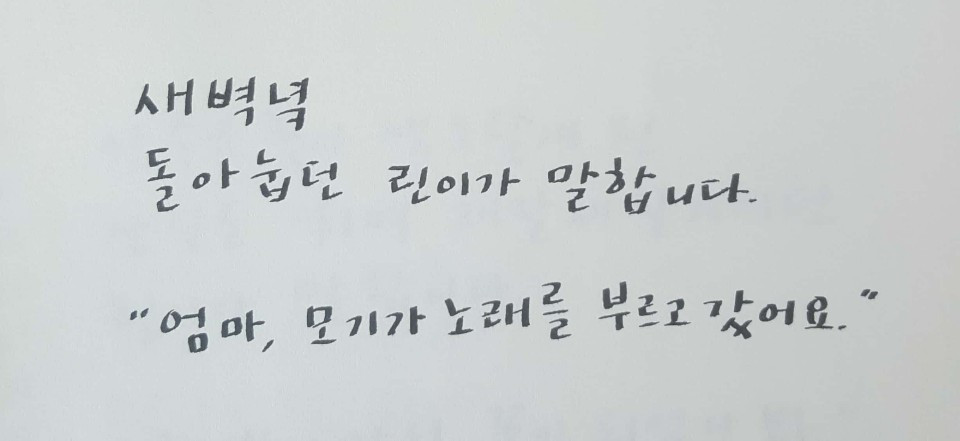 새벽녘
돌아눕던 린이가 말합니다.
"엄마, 모기가 노래를 부르고 갔어요."